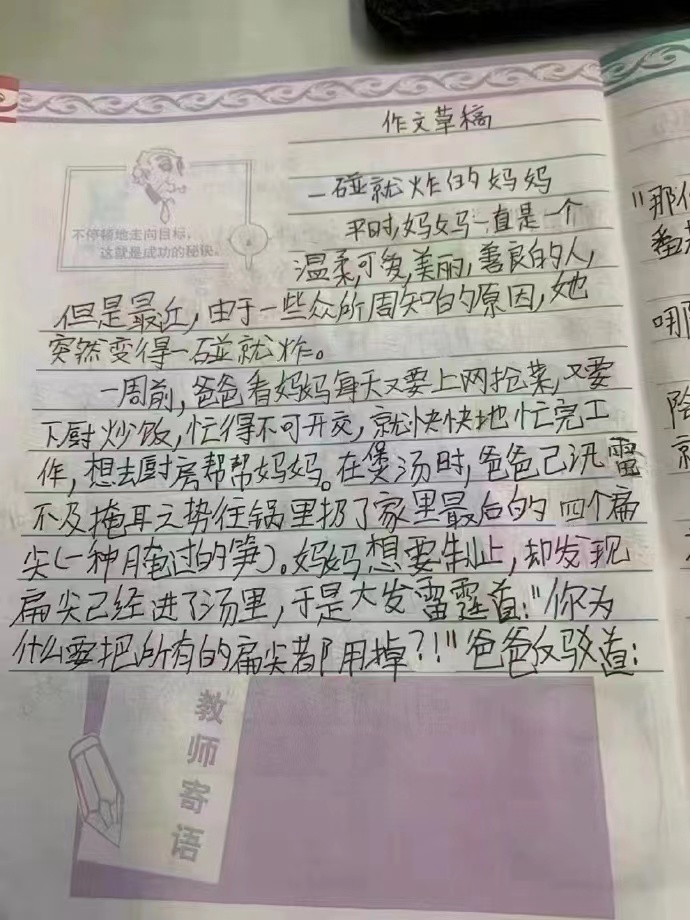 作文草稿
不停顿地走向目标，
这就是成功的秘诀。
一碰就炸的妈妈
平时，妈妈一直是一个
温柔，可爱，美丽，善良的人，
但是最近，由于一些众所周知的原因，她
突然变得一碰就炸。
一周前，爸爸看妈妈每天又要上网抢菜，又要
下厨炒饭，忙得不可开交，就快快地忙完工
作，想去厨房帮帮妈妈。在煲汤时，爸爸已汛雷
不及掩耳之势往锅里扔了家里最后的四个扁
尖（一种腌过的笋）。妈妈想要制止，却发现
扁尖已经进了汤里，于是大发雷霆道：“你为
什么要把所有的扁尖都用掉？！”爸爸反驳道：
“那
哪
教师寄语